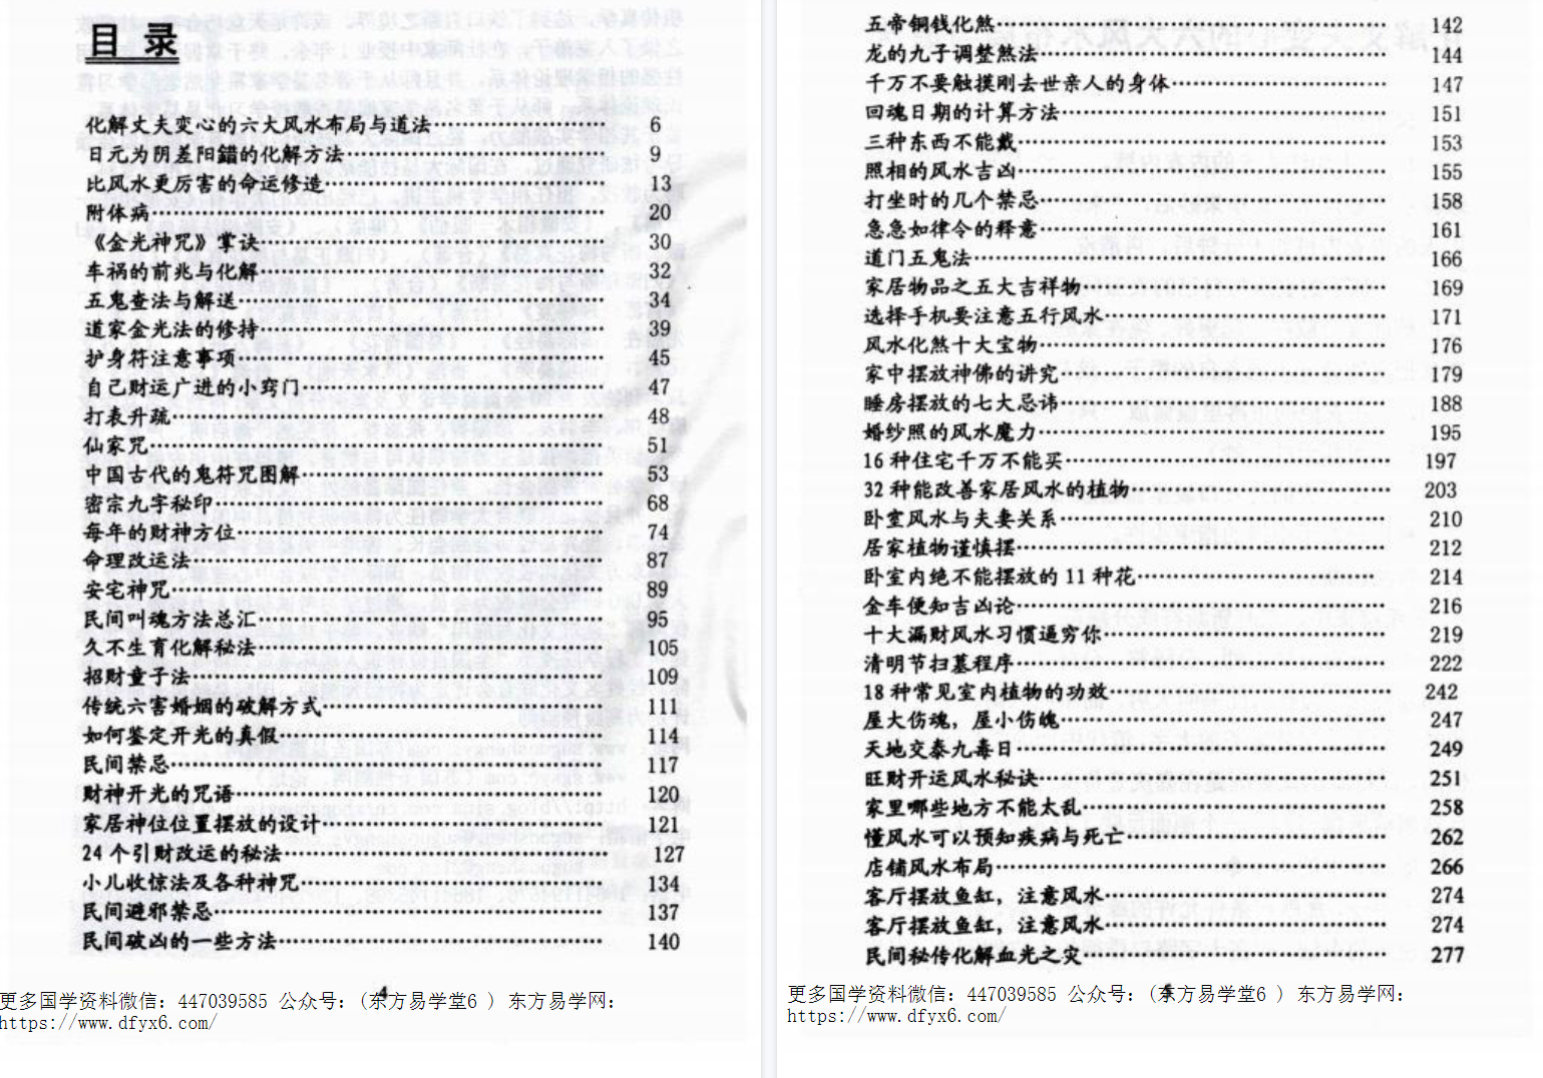 目 录
化解丈夫变心的六大风水布局与道法 6
日元为阴差阳錯的化解方法 9
比风水更厉害的命运修造 13
附体病 20
《金光神咒》掌诀 30
车祸的前兆与化解 32
五鬼查法与解送 34
道家金光法的修持 39
护身符注意事项 45
自己财运广进的小窍门 47
打表升疏 48
仙家咒 51
中国古代的鬼符咒图解 53
密宗九字秘印 68
每年的财神方位 74
命理改运法 87
安宅神咒 89
民间叫魂方法总汇 95
久不生育化解秘法 105
招财童子法 109
传统六害婚姻的破解方式 111
如何鉴定开光的真假 114
民间禁忌 117
财神开光的咒语 120
家居神位位置摆放的设计 121
24 个引财改运的秘法 127
小儿收惊法及各种神咒 134
民间避邪禁忌 137
民间破凶的一些方法 140
4
更多国学资料微信：447039585 公众号：(东方易学堂6 ) 东方易学网：
https://www.dfyx6.com/
五帝铜钱化煞 142
龙的九子调整煞法 144
千万不要触摸刚去世亲人的身体 147
回魂日期的计算方法 151
三种东西不能戴 153
照相的风水吉凶 155
打坐时的几个禁忌 158
急急如律令的释意 161
道门五鬼法 166
家居物品之五大吉祥物 169
选择手机要注意五行风水 171
风水化煞十大宝物 176
家中摆放神佛的讲究 179
睡房摆放的七大忌讳 188
婚纱照的风水魔力 195
16 种住宅千万不能买 197
32 种能改善家居风水的植物 203
卧室风水与夫妻关系 210
居家植物谨慎摆 212
卧室内绝不能摆放的 11 种花 214
金车便知吉凶论 216
十大漏财风水习惯逼穷你 219
清明节扫墓程序 222
18 种常见室内植物的功效 242
屋大伤魂，屋小伤魄 247
天地交泰九毒日 249
旺财开运风水秘诀 251
家里哪些地方不能太乱 258
懂风水可以预知疾病与死亡 262
店铺风水布局 266
客厅摆放鱼缸，注意风水 274
客厅摆放鱼缸，注意风水 274
民间秘传化解血光之灾 277
更多国学资料微信：447039585 公众号：(东方易学堂6 ) 东方易学网：
https://www.dfyx6.com/